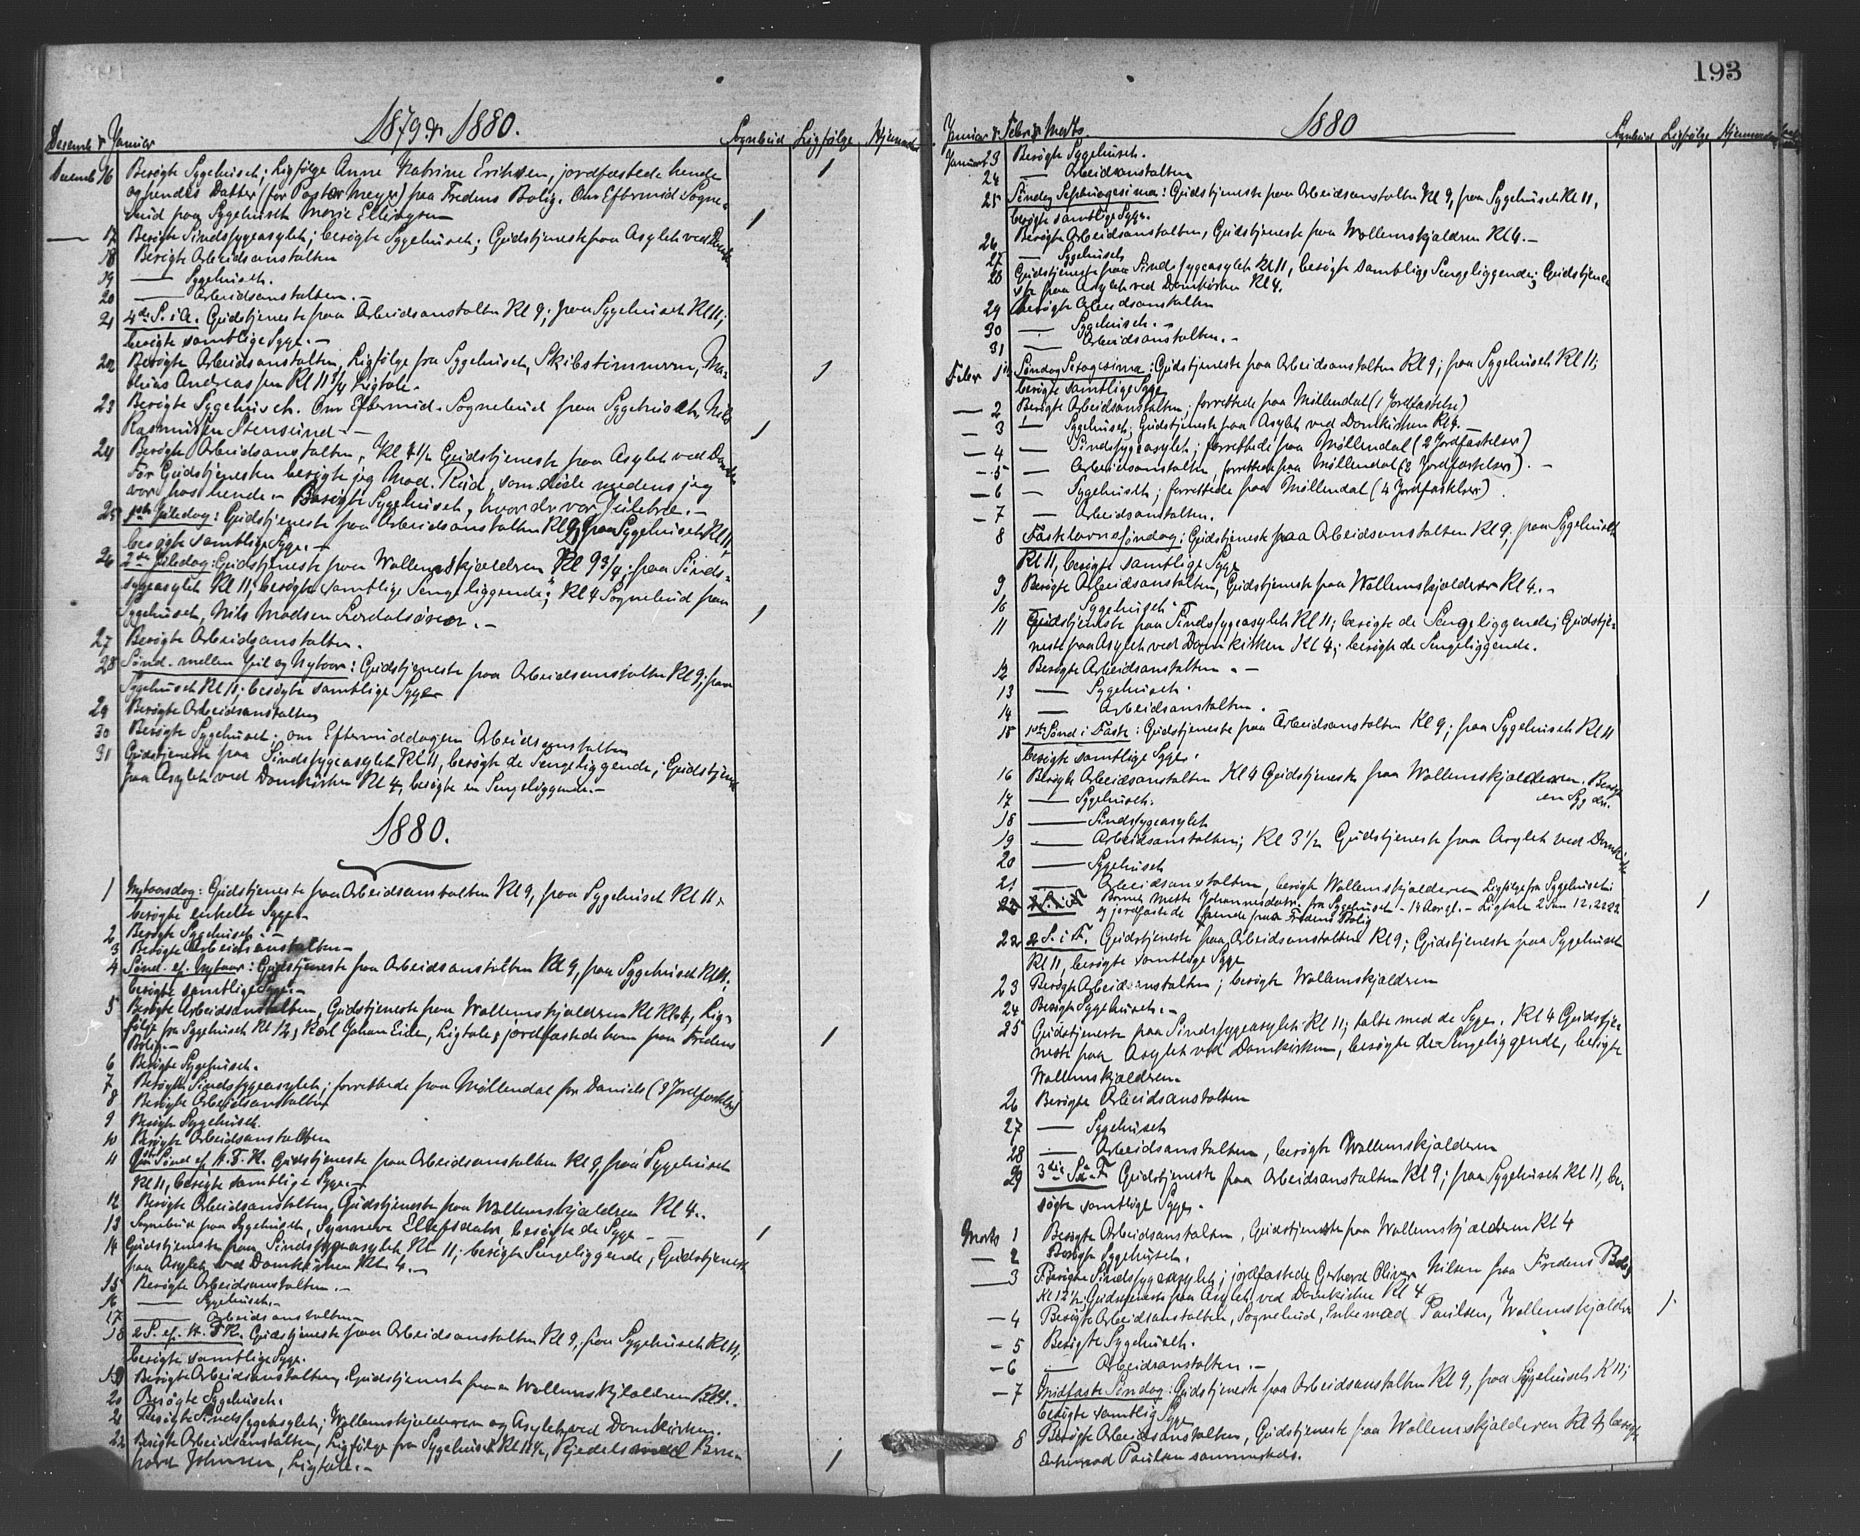 1879 & 1880.
Decemb & Januar
Sognebud Ligfølge Hjemmedøbt
Decemb 16 Besøgte Sygehuset; Ligfølge Anne Katrine Eriksen, jordfæstede hende
og hendes Datter (for Pastor Meyer) paa Fredens Bolig. Om Eftermid Sogne- 1
bud paa Sygehuset Marie Ellingsen 1
— 17 Besøgte Sindssygeasylet; besøgte Sygehuset; Gudstjeneste paa Asylet ved Domk
18 Besøgte Arbeidsanstalten
19 — Sygehuset.
20 — Arbeidsanstalten.
21 4de S. i A. Gudstjeneste paa Arbeidsanstalten Kl 9; paa Sygehuset Kl 11;
besøgte samtlige Syge. -
22 Besøgte Arbeidsanstalten, Ligfølge fra Sygehuset, Skibstømmerm, Ma-
thias Andreassen Kl 11 3/4 Ligtale. 1
23 Besøgte Sygehuset. Om Eftermid. Sognebud paa Sygehuset, Nils
Rasmussen Stensund. - 1
24 Besøgte Arbeidsanstalten, Kl 4 1/2 Gudstjeneste paa Asylet ved Domk
Før Gudstjenesten besøgte jeg Mad. Rud, som døde medens jeg
var hos hende. - Besøgte Sygehuset, hvor der var Juletræ. -
25 1ste Juledag: Gudstjeneste paa Arbeidsanstalten Kl 9; paa Sygehuset Kl 11,
besøgte samtlige Syge. -
26 2den Juledag: Gudstjeneste paa Wollemskjælderen Kl 9 3/4; paa Sinds-
sygeasylet Kl 11; besøgte samtlige Sengeliggende; Kl 4 Sognebud paa
Sygehuset, Nils Madsen Lærdalsøren. - 1
27 Besøgte Arbeidsanstalten.
28 Sønd. mellem Jul og Nytaar: Gudstjeneste paa Arbeidsanstalten Kl 9; paa
Sygehuset Kl 11; besøgte samtlige Syge
29 Besøgte Arbeidsanstalten
30 Besøgte Sygehuset. om Eftermiddagen Arbeidsanstalten
31 Gudstjeneste paa Sindssygeasylet Kl 11, besøgte de Sengeliggende; Gudstjene
paa Asylet ved Domkirken Kl 4, besøgte en Sengeliggende. -
1880.
1 Nytaarsdag: Gudstjeneste paa Arbeidsanstalten Kl 9, paa Sygehuset Kl 11.
besøgte enkelte Syge. -
2 Besøgte Sygehuset. -
3 Besøgte Arbeidsanstalten -
4 Sønd. ef. Nytaar: Gudstjeneste paa Arbeidsanstalten Kl 9, paa Sygehuset Kl 11.
besøgte samtlige Syge. -
5 Besøgte Arbeidsanstalten, Gudstjeneste paa Wollemskjælderen Kl 4, Lig-
følge fra Sygehuset Kl 12, Karl Johan Eide, Ligtale; jordfæstede ham paa Fredens
Bolig. - 1
6 Besøgte Sygehuset.
7 Besøgte Sindssygeasylet; forrettede paa Møllendal for Daniels (3 Jordfæstelser)
8 Besøgte Arbeidsanstalten
9 Besøgte Sygehuset.
10 Besøgte Arbeidsanstalten
11 1ste Sønd ef. H. 3 K. Gudstjeneste paa Arbeidsanstalten Kl 9, paa Sygehuset
Kl 11, besøgte samtlige Syge. -
12 Besøgte Arbeidsanstalten, Gudstjeneste paa Wollemskjælderen Kl 4.
13 Sognebud paa Sygehuset, Synneva Ellefsdatr, besøgte de Syge — 1
14 Gudstjeneste paa Sindssygeasylet Kl 11; besøgte Sengeliggende, Gudstjenest
paa Asylet ved Domkirken Kl 4. -
15 Besøgte Arbeidsanstalten. -
16 — Sygehuset. -
17 — Arbeidsanstalten
18 2 S. ef. H. 3 K. Gudstjeneste paa Arbeidsanstalten Kl 9, paa Sygehuset Kl 11;
besøgte samtlige Syge.
19 Besøgte Arbeidsanstalten, Gudstjeneste paa Wollemskjælderen Kl 4.
20 Besøgte Sygehuset.
21 Besøgte Sindssygeasylet; Wollemskjælderen og Asylet ved Domkirken.
22 Besøgte Arbeidsanstalten, Ligfølge fra Sygehuset Kl 12 1/2, Kjedelsmed Bern-
hard Johnsen, Ligtale. - 1
193
1880
Januar & Febr & Marts
Sognebud Ligfølge Hjemmedøbt
Januar 23 Besøgte Sygehuset.
24 — Arbeidsanstalten
25 Søndag Septuagesima: Gudstjeneste paa Arbeidsanstalten Kl 9, paa Sygehuset Kl 11,
besøgte samtlige Syge.
26 Besøgte Arbeidsanstalten, Gudstjeneste paa Wollemskjælderen Kl 4. -
27 — Sygehuset
28 Gudstjeneste paa Sindssygeasylet Kl 11, besøgte samtlige Sengeliggende; Gudstjene
ste paa Asylet ved Domkirken Kl 4.
29 Besøgte Arbeidsanstalten
30 — Sygehuset. -
31 — Arbeidsanstalten. -
Febr 1 Søndag Sexagesima: Gudstjeneste paa Arbeidsanstalten Kl 9; paa Sygehuset Kl 11;
besøgte samtlige Syge
— 2 Besøgte Arbeidsanstalten; forrettede paa Møllendal (1 Jordfæstelse)
— 3 — Sygehuset; Gudstjeneste paa Asylet ved Domkirken Kl 4. —
— 4 — Sindssygeasylet; forrettede paa Møllendal (2 Jordfæstelser)
— 5 — Arbeidsanstalten, forrettede paa Møllendal (2 Jordfæstelser). -
— 6 — Sygehuset; forrettede paa Møllendal (4 Jordfæstelser).
— 7 — Arbeidsanstalten.
8 Fastelavnssøndag: Gudstjeneste paa Arbeidsanstalten Kl 9; paa Sygehuset
Kl 11, besøgte samtlige Syge
9 Besøgte Arbeidsanstalten, Gudstjeneste paa Wollemskjælderen Kl 4. -
10 — Sygehuset. -
11 Gudstjeneste paa Sindssygeasylet Kl 11; besøgte de Sengeliggende; Gudstje-
neste paa Asylet ved Domkirken Kl 4; besøgte de Sengeliggende.
12 Besøgte Arbeidsanstalten. -
13 — Sygehuset.
14 — Arbeidsanstalten.
15 1ste Sønd i Faste: Gudstjeneste paa Arbeidsanstalten Kl 9; paa Sygehuset Kl 11
besøgte samtlige Syge.
16 Besøgte Arbeidsanstalten Kl 4 Gudstjeneste paa Wollemskjælderen. Besøgt
en Syg der.
17 — Sygehuset.
18 — Sindssygeasylet
19 — Arbeidsanstalten; Kl 3 1/2 Gudstjeneste paa Asylet ved Domkirke
20 — Sygehuset
21 — Arbeidsanstalten, besøgte Wollemskjælderen Ligfølge fra Sygehuset
22 Barnet Mette Johannesdatr. fra Sygehuset - 14 Aar gl. - Ligtale 2 Sam 12.22.23 1
og jordfæstede hende paa Fredens Bolig
22 2 S. i F. Gudstjeneste paa Arbeidsanstalten Kl 9; Gudstjeneste paa Sygehuset
Kl 11, besøgte samtlige Syge
23 Besøgte Arbeidsanstalten; besøgte Wollemskjælderen
24 Besøgte Sygehuset. -
25 Gudstjeneste paa Sindssygeasylet Kl 11; talte med de Syge. Kl 4 Gudstje-
neste paa Asylet ved Domkirken, besøgte de Sengeliggende, besøgte
Wollemskjælderen.
26 Besøgte Arbeidsanstalten
27 — Sygehuset
28 — Arbeidsanstalten, besøgte Wollemskjælderen
29 3die S. i F Gudstjeneste paa Arbeidsanstalten Kl 9; paa Sygehuset Kl 11, be-
søgte samtlige Syge.
Marts 1 Besøgte Arbeidsanstalten, Gudstjeneste paa Wollemskjælderen Kl 4
— 2 Besøgte Sygehuset.
— 3 Besøgte Sindssygeasylet; jordfæstede Gerhard Oliver Nilsen paa Fredens Bolig
Kl 12 1/2; Gudstjeneste paa Asylet ved Domkirken Kl 4
— 4 Besøgte Arbeidsanstalten, Sognebud, Enkemad Paulsen, Wollemskjælder 1.
— 5 Besøgte Sygehuset.
— 6 — Arbeidsanstalten. -
— 7 Midfaste Søndag: Gudstjeneste paa Arbeidsanstalten Kl 9, paa Sygehuset Kl 11;
besøgte samtlig Syge
8 Besøgte Arbeidsanstalten, Gudstjeneste paa Wollemskjælderen Kl 4, besøgte
Enkemad Paulsen sammesteds.